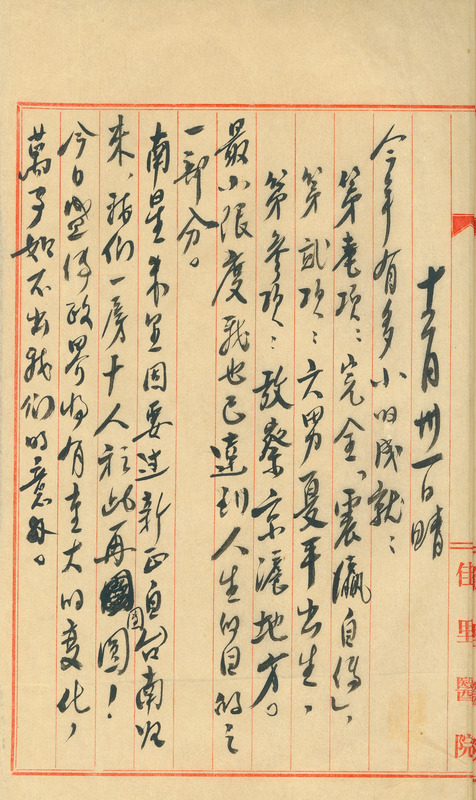 十二月卅一日晴
今年有多小的成就：
第壹項：完全「震瀛自傳」，
第貳項：六男夏平出生，
第叁項：敬察京滬地方。
最小限度我也已達到人生的目的之
一部分。
南星朱里因要過新正自台南归
来，我们一房十人於此再團圓！
今日盛傳政界將有重大的变化，
萬事如不出我们的意外。
佳里醫院